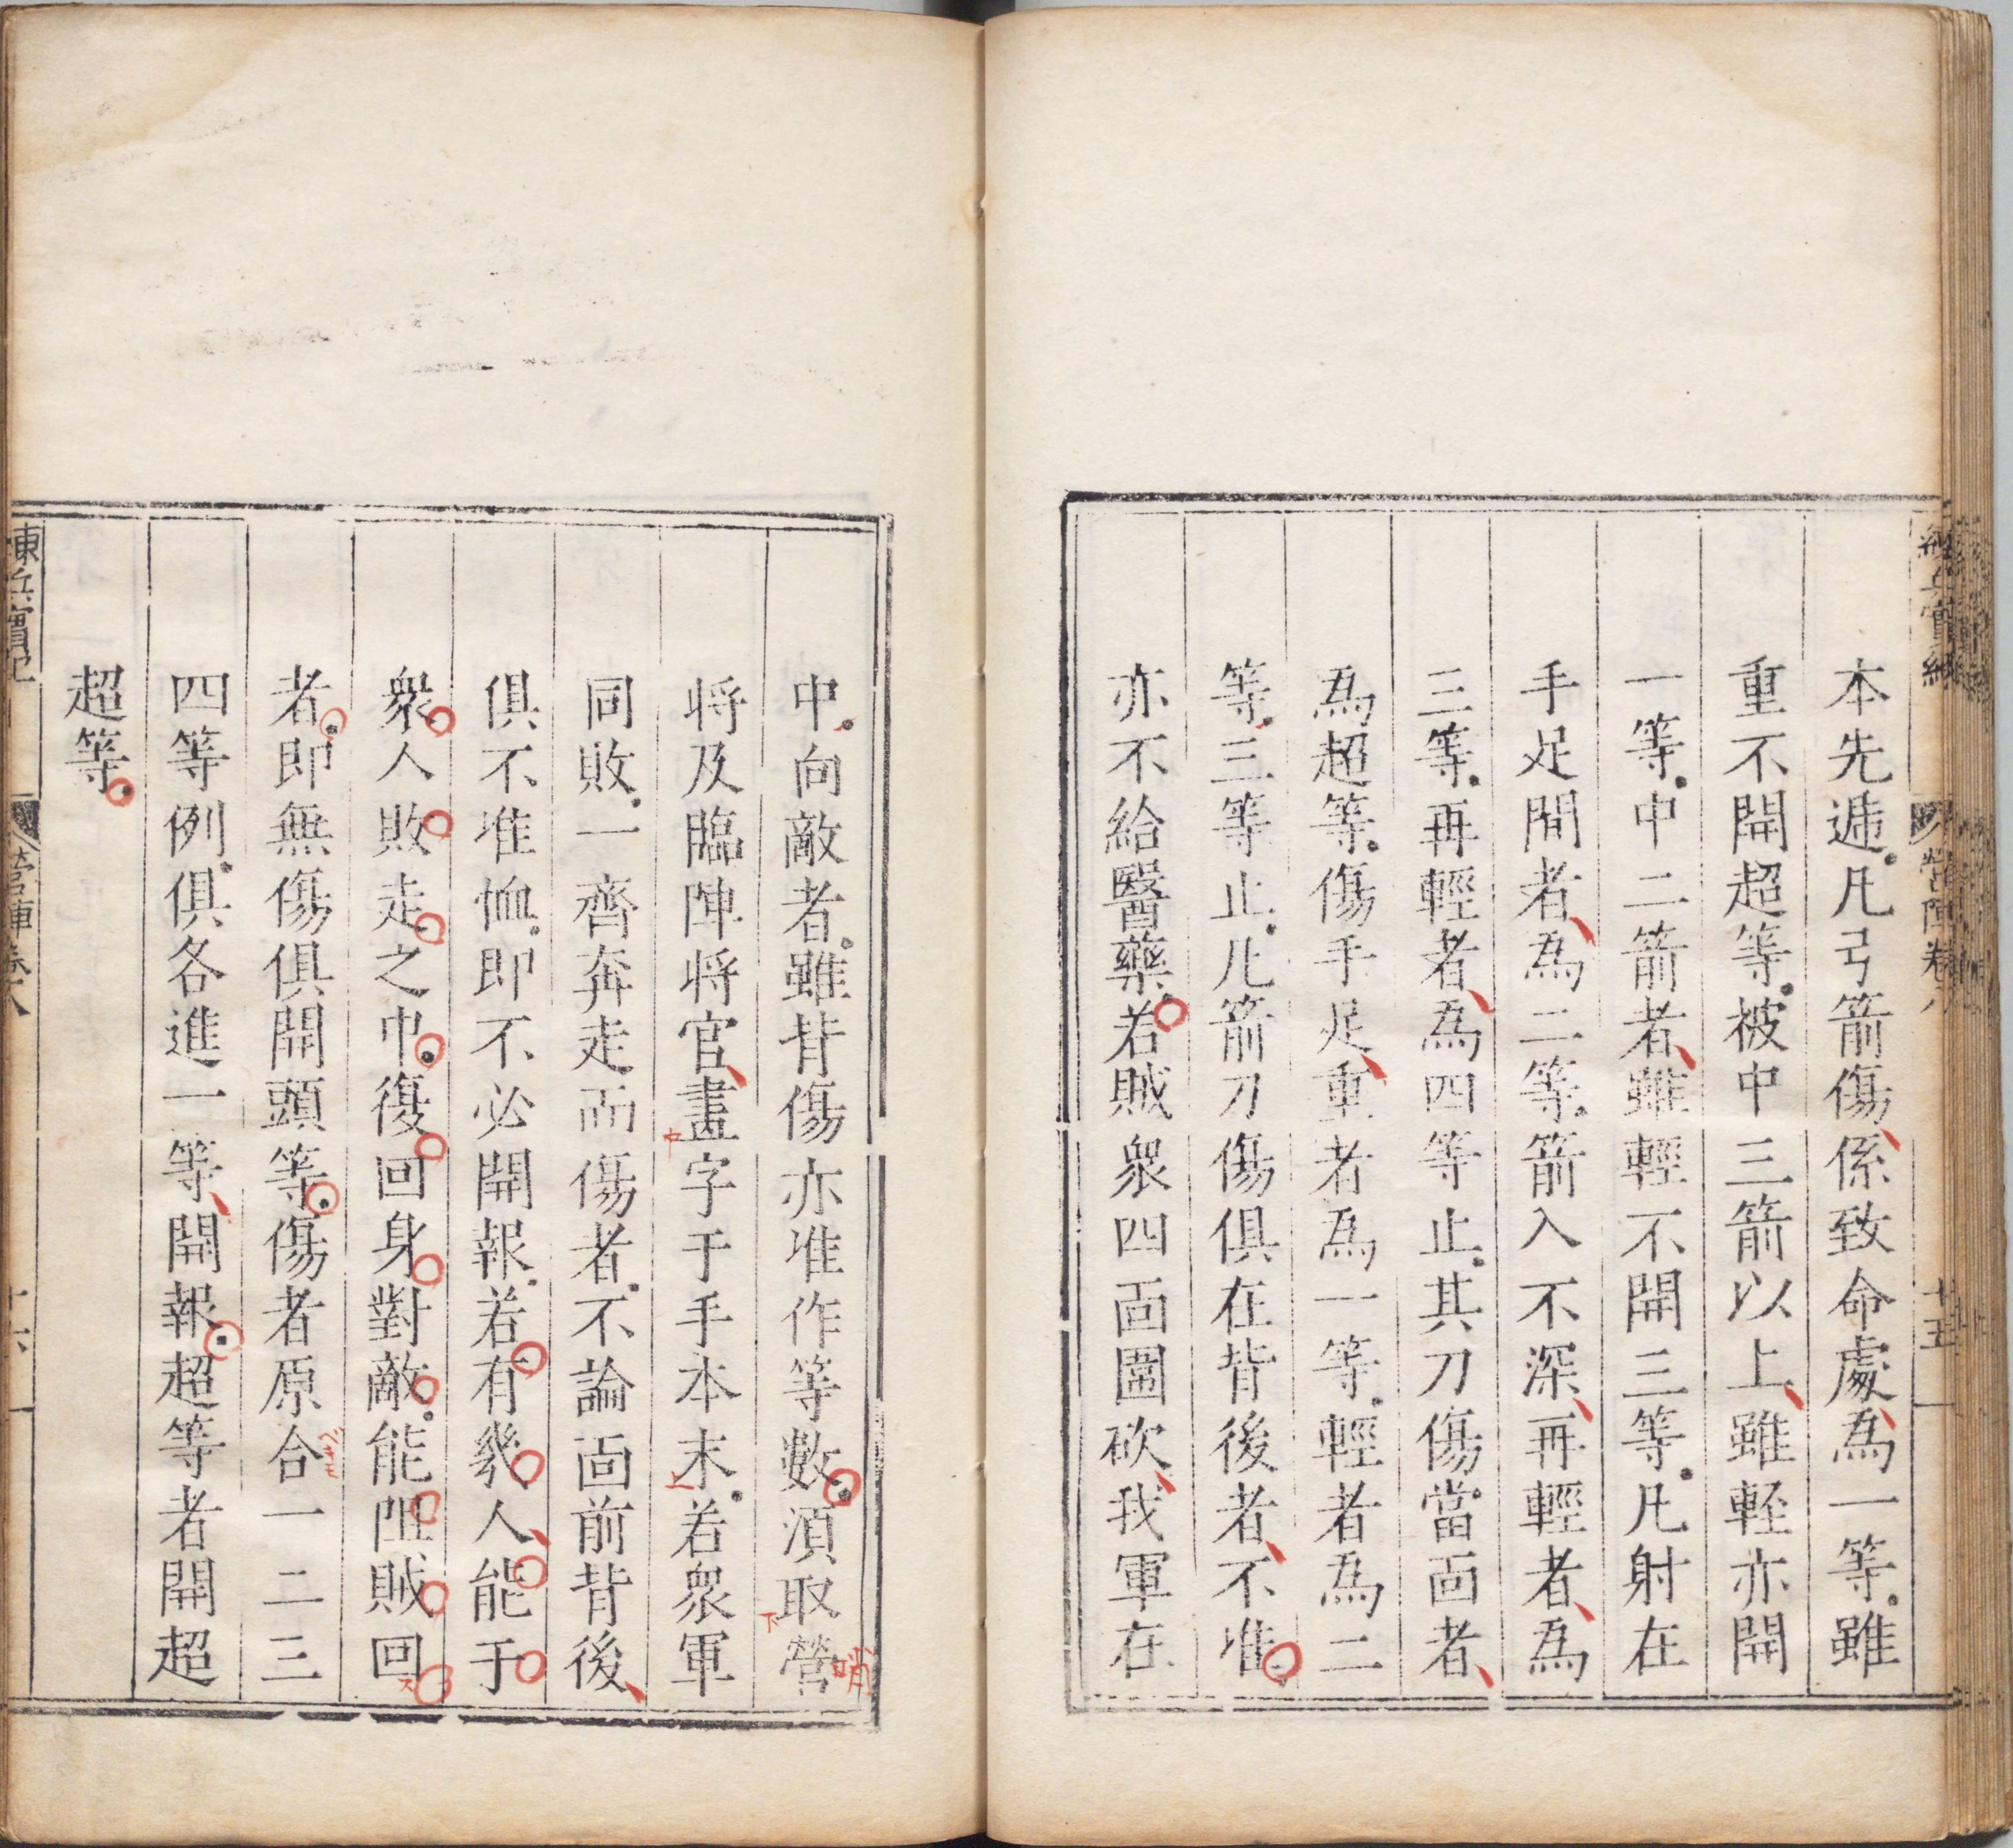 練兵實紀 營陣卷八 十五
本先遞凡弓箭傷係致命處為一等雖
重不開超等被中三箭以上雖輕亦開
一等中二箭者雖輕不開三等凡射在
手足間者為二等箭入不深再輕者為
三等再輕者為四等止其刀傷當面者
為超等傷手足重者為一等輕者為二
等三等止凡箭刀傷俱在背後者不准
亦不給醫藥若賊衆四面圍砍我軍在
中向敵者雖背傷亦准作等數須取營
哨
将及臨陣将官畫字于手本末若衆軍
同敗一齊奔走而傷者不論面前背後
俱不准恤即不必開報若有幾人能于
衆人敗走之中復回身對敵能阻賊回
者即無傷俱開頭等傷者原合一二三
四等例俱各進一等開報超等者開超
超等
練兵實紀 營陣卷八 十六